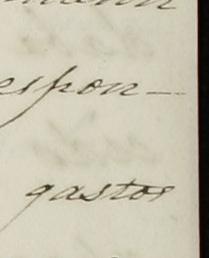 espon-
gastos